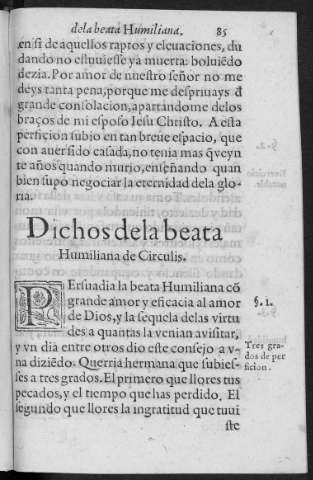 dela beata Humiliana. 85
en si de aquellos raptos y eleuaciones, du
dando no estuuiesse ya muerta: boluiẽdo
dezia. Por amor de nuestro señor no me
deys tanta pena, porque me despriuays đ
grande consolacion, apartandome delos
braços de mi esposo Iesu Christo. A esta
perficion subio en tan breue espacio, que
con auer sido casada, no tenia mas q̃ veyn
te años quando murio, enseñando quan
bien supo negociar la eternidad dela glo-
ria.
Dichos dela beata
Humiliana de Circulis.
PErsuadia la beata Humiliana cõ
grande amor y eficacia al amor
de Dios, y la sequela de las virtu
des a quantas la venian a visitar,
y vn dia entre otros dio este consejo a v-
na diziẽdo. Querria hermana que subies-
ses a tres grados. El primero que llores tus
pecados, y el tiempo que has perdido. El
segundo que llores la ingratitud que tuui
ste
§. 1.
Tres gra-
dos de per
ficion.